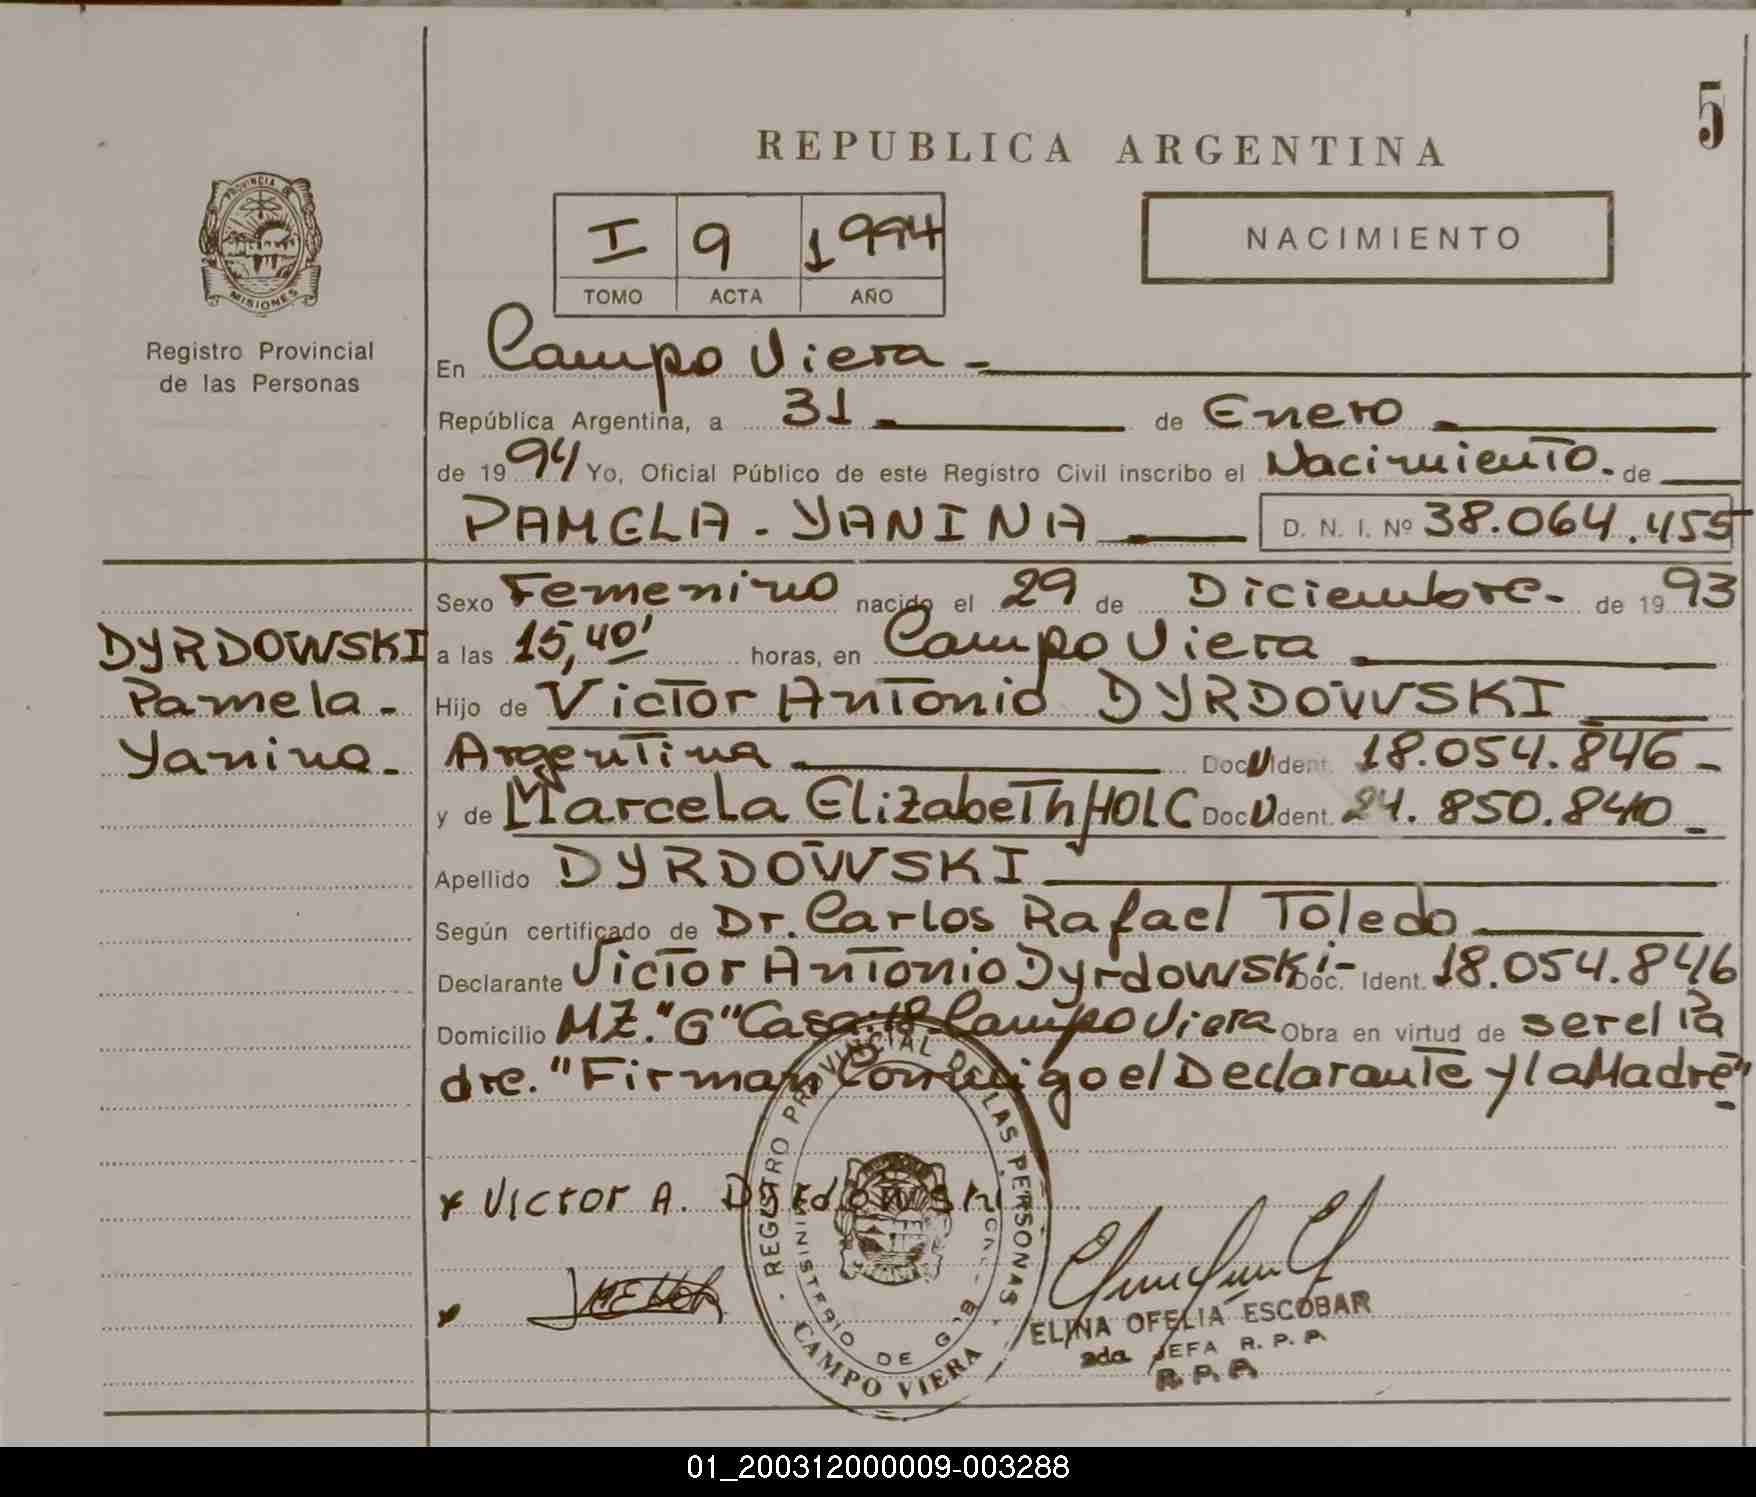 5
REPUBLICA ARGENTINA
PROVINCIA DE
MISIONES
Registro Provincial
de las Personas
I 9 1994
TOMO ACTA AÑO
NACIMIENTO
En Campo Viera -
República Argentina, a 31 de Enero
de 1994 Yo, Oficial Público de este Registro Civil inscribo el Nacimiento. de
PAMELA - YANINA D. N. I. Nº 38.064.455
Sexo Femenino nacido el 29 de Diciembre - de 1993
DYRDOWSKI
Pamela -
Yanina -
a las 15,40' horas, en Campo Viera
Hijo de Victor Antonio DYRDOWSKI
Argentina Doc U Ident. 18.054.846 -
y de Marcela Elizabeth HOLC Doc U dent. 24.850.840 -
Apellido DYRDOWSKI
Según certificado de Dr. Carlos Rafael Toledo
Declarante Victor Antonio Dyrdowski - Doc. Ident. 18.054.846
Domicilio MZ. "G" Casa: 18 Campo Viera Obra en virtud de ser el Pa
dre. "Firman Conmigo el Declarante y la Madre" -
x VICTOR A. Dyrdowski
x
REGISTRO PROVINCIAL DE LAS PERSONAS
MINISTERIO DE G.
CAMPO VIERA
ELINA OFELIA ESCOBAR
2da JEFA R. P. P.
R. P. P.
01_200312000009-003288